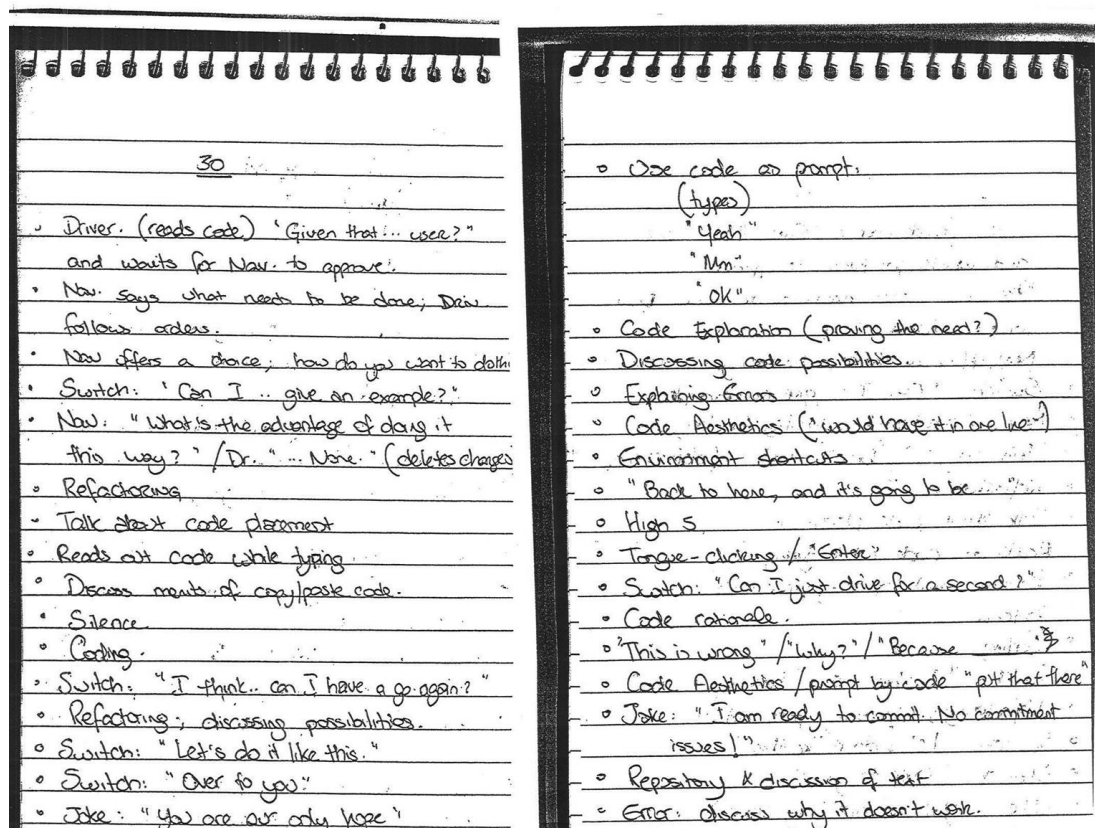 30
Driver. (reads code) "Given that... user?"
and waits for Nav. to approve.
Nav. says what needs to be done; Driv
follows orders.
Nav offers a choice; how do you want to do thi
Switch: "Can I .. give an example?"
Nav: "What is the advantage of doing it
this way?" / Dr. "... None." (deletes changes
Refactoring
Talk about code placement
Reads out code while typing.
Discuss merits of copy/paste code.
Silence
Coding.
Switch: "I think.. can I have a go again?"
Refactoring; discussing possibilities.
Switch: "Let's do it like this."
Switch: "Over to you."
Joke: "You are our only hope"
Use code as prompt:
(types)
"Yeah"
"Mm"
"OK"
Code Exploration (proving the need?)
Discussing code possibilities.
Explaining Errors
Code Aesthetics ("would have it in one line")
Environment shortcuts
"Back to here, and it's going to be ..."
High 5
Tongue-clicking / "Enter"
Switch: "Can I just drive for a second?"
Code rationale.
"This is wrong" / "Why?" / "Because
Code Aesthetics / prompt by code "put that there"
Joke: "I am ready to commit. No commitment
issues!"
Repository & discussion of test
Error: discuss why it doesn't work.